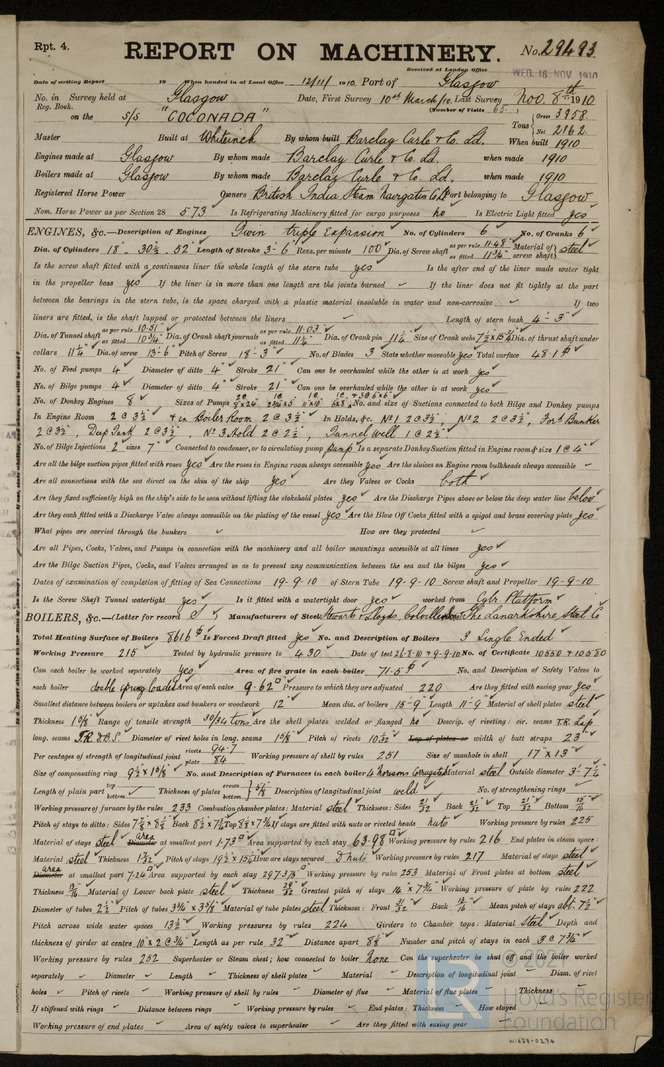 Rpt. 4.
REPORT ON MACHINERY.
No. 29493
Received at London Office
WED. 16 NOV 1910
Date of writing Report 19 When handed in at Local Office 12/11/1910 Port of Glasgow
No. in Survey held at Glasgow Date, First Survey 10th March/10 Last Survey Nov. 8th 1910
Reg. Book. (Number of Visits 65
on the S/S "COCONADA" Tons { Gross 3958 Net 2162
Master Built at Whiteinch By whom built Barclay Curle & Co. Ld. When built 1910
Engines made at Glasgow By whom made Barclay Curle & Co. Ld. when made 1910
Boilers made at Glasgow By whom made Barclay Curle & Co. Ld. when made 1910
Registered Horse Power Owners British India Steam Navigation Co Ld Port belonging to Glasgow
Nom. Horse Power as per Section 28 573 Is Refrigerating Machinery fitted for cargo purposes no Is Electric Light fitted yes
ENGINES, &c.—Description of Engines Twin triple expansion No. of Cylinders 6 No. of Cranks 6
Dia. of Cylinders 18 - 30½ - 52 Length of Stroke 3'-6" Revs. per minute 100 Dia. of Screw shaft as per rule 11.48 as fitted 11¾ Material of screw shaft steel
Is the screw shaft fitted with a continuous liner the whole length of the stern tube yes Is the after end of the liner made water tight
in the propeller boss yes If the liner is in more than one length are the joints burned If the liner does not fit tightly at the part
between the bearings in the stern tube, is the space charged with a plastic material insoluble in water and non-corrosive If two
liners are fitted, is the shaft lapped or protected between the liners Length of stern bush 4'-3"
Dia. of Tunnel shaft as per rule 10.51 as fitted 10¾ Dia. of Crank shaft journals as per rule 11.03 as fitted 11¼ Dia. of Crank pin 11¼ Size of Crank webs Dia. of thrust shaft under
collars 11¼ Dia. of screw 13-6 Pitch of Screw 18-3 No. of Blades 3 State whether moveable yes Total surface 48.1
No. of Feed pumps 4 Diameter of ditto 4 Stroke 21 Can one be overhauled while the other is at work yes
No. of Bilge pumps 4 Diameter of ditto 4 Stroke 21 Can one be overhauled while the other is at work yes
No. of Donkey Engines 8 Sizes of Pumps No. and size of Suctions connected to both Bilge and Donkey pumps
In Engine Room 2 @ 3½ & in Boiler Room 2 @ 3½ In Holds, &c. No 1 2 @ 3½, No 2 2 @ 3½, Ford Bunker
2 @ 3½, Deep Tank 2 @ 3½, No 3 Hold 2 @ 2½, Tunnel Well 1 @ 2½
No. of Bilge Injections 2 sizes 7 Connected to condenser, or to circulating pump pump Is a separate Donkey Suction fitted in Engine room & size 1 @ 4
Are all the bilge suction pipes fitted with roses yes Are the roses in Engine room always accessible yes Are the sluices on Engine room bulkheads always accessible
Are all connections with the sea direct on the skin of the ship yes Are they Valves or Cocks both
Are they fixed sufficiently high on the ship's side to be seen without lifting the stokehold plates yes Are the Discharge Pipes above or below the deep water line below
Are they each fitted with a Discharge Valve always accessible on the plating of the vessel yes Are the Blow Off Cocks fitted with a spigot and brass covering plate yes
What pipes are carried through the bunkers How are they protected
Are all Pipes, Cocks, Valves, and Pumps in connection with the machinery and all boiler mountings accessible at all times yes
Are the Bilge Suction Pipes, Cocks, and Valves arranged so as to prevent any communication between the sea and the bilges yes
Dates of examination of completion of fitting of Sea Connections 19-9-10 of Stern Tube 19-9-10 Screw shaft and Propeller 19-9-10
Is the Screw Shaft Tunnel watertight yes Is it fitted with a watertight door yes worked from Cylr. Platform
BOILERS, &c.—(Letter for record S) Manufacturers of Steel Stewart & Lloyds The Lanarkshire Steel Co
Total Heating Surface of Boilers 8616 Is Forced Draft fitted yes No. and Description of Boilers 3 Single Ended
Working Pressure 215 Tested by hydraulic pressure to 430 Date of test 26-8-10 & 9-9-10 No. of Certificate 10550 & 10580
Can each boiler be worked separately yes Area of fire grate in each boiler 71.5 No. and Description of Safety Valves to
each boiler double spring loaded Area of each valve 9.62 Pressure to which they are adjusted 220 Are they fitted with easing gear yes
Smallest distance between boilers or uptakes and bunkers or woodwork 12 Mean dia. of boilers 15-9 Length 11-9 Material of shell plates steel
Thickness Range of tensile strength 30/34 tons Are the shell plates welded or flanged no Descrip. of riveting: cir. seams T.R. Lap
long. seams T.R.D.B.S Diameter of rivet holes in long. seams Pitch of rivets Lap of plates or width of butt straps 23
Per centages of strength of longitudinal joint rivets 94.7 plate 84 Working pressure of shell by rules 251 Size of manhole in shell 17 x 13
Size of compensating ring No. and Description of Furnaces in each boiler 4 Morisons Corrugated Material steel Outside diameter
Length of plain part top bottom Thickness of plates crown bottom Description of longitudinal joint weld No. of strengthening rings
Working pressure of furnace by the rules 233 Combustion chamber plates: Material steel Thickness: Sides 21/32 Back 21/32 Top 21/32 Bottom
Pitch of stays to ditto: Sides Back Top If stays are fitted with nuts or riveted heads nuts Working pressure by rules 225
Material of stays steel area Diameter at smallest part 1.73 Area supported by each stay 63.98 Working pressure by rules 216 End plates in steam space:
Material steel Thickness Pitch of stays How are stays secured Working pressure by rules 217 Material of stays steel
area Diameter at smallest part 7.24 Area supported by each stay Working pressure by rules 253 Material of Front plates at bottom steel
Thickness Material of Lower back plate steel Thickness Greatest pitch of stays Working pressure of plate by rules 222
Diameter of tubes 2½ Pitch of tubes Material of tube plates steel Thickness: Front Back Mean pitch of stays
Pitch across wide water spaces 13½ Working pressures by rules 224 Girders to Chamber tops: Material steel Depth and
thickness of girder at centre Length as per rule 32 Distance apart Number and pitch of stays in each
Working pressure by rules 252 Superheater or Steam chest; how connected to boiler None Can the superheater be shut off and the boiler worked
separately Diameter Length Thickness of shell plates Material Description of longitudinal joint Diam. of rivet
holes Pitch of rivets Working pressure of shell by rules Diameter of flue Material of flue plates Thickness
If stiffened with rings Distance between rings Working pressure by rules End plates: Thickness How stayed
Working pressure of end plates Area of safety valves to superheater Are they fitted with easing gear
© 2021
Lloyd's Register
Foundation
W1627-0274